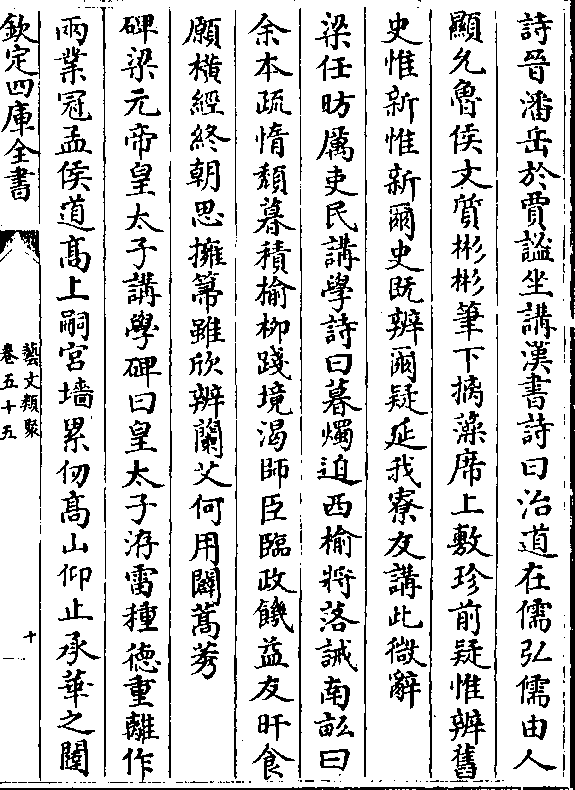 詩晉潘岳於賈謐坐講漢書詩曰治道在儒弘儒由人
顯允魯侯文質彬彬筆下摛藻席上敷珍前疑惟辨舊
史惟新惟新爾史既辨爾疑延我寮友講此微辭
梁任昉厲吏民講學詩曰暮燭迫西榆將落誡南畝曰
余本疏惰頹暮積榆柳踐境渴師臣臨政饑益友旰食
願橫經終朝思擁箒雖欣辨蘭艾何用闢蒿莠
碑梁元帝皇太子講學碑曰皇太子洊雷種德重離作
兩業冠孟侯道高上嗣宮墻累仞高山仰止承華之闥
欽定四庫全書
藝文類聚
卷五十五
十一